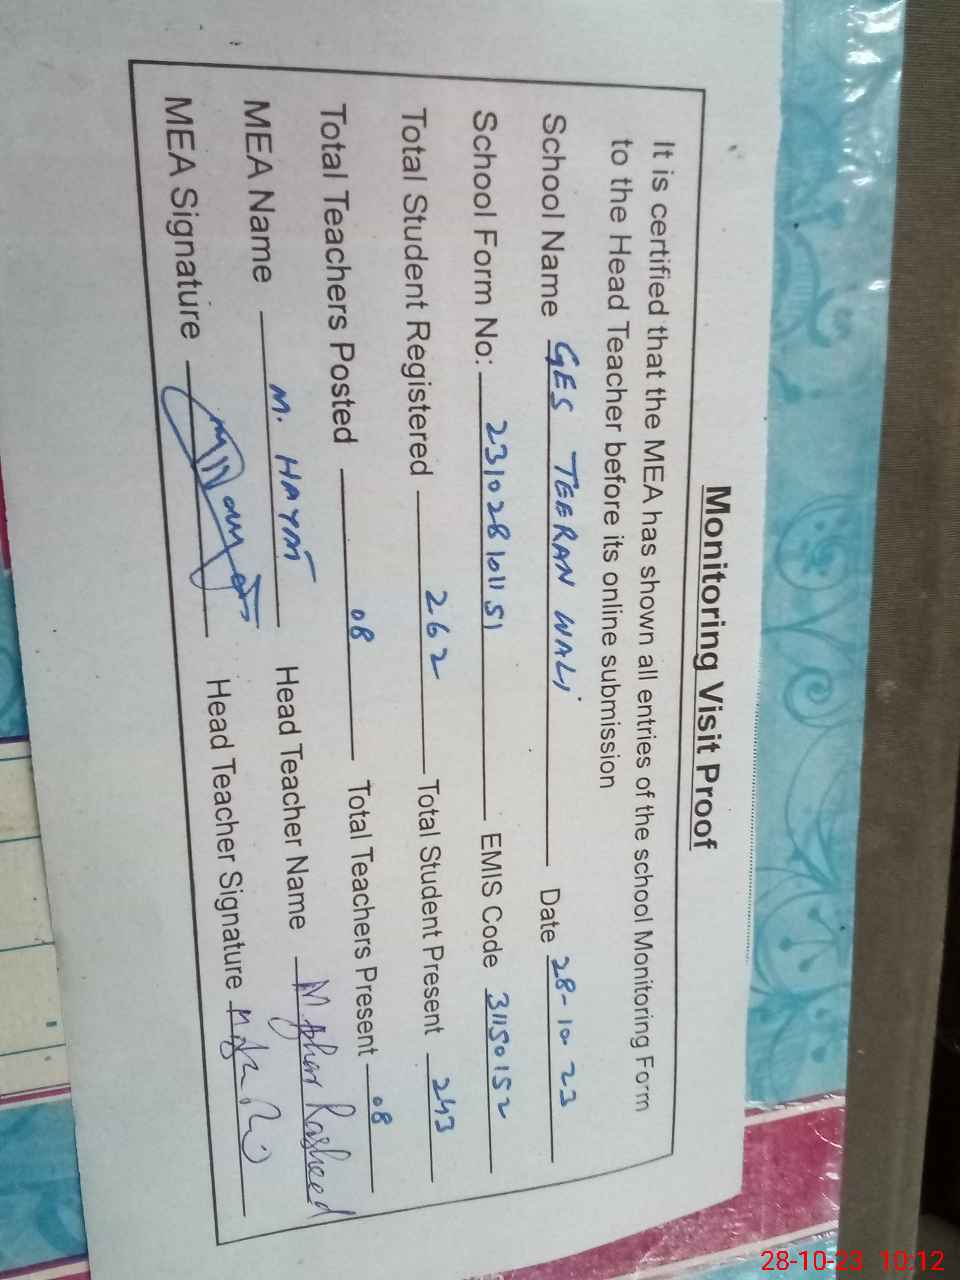 Monitoring Visit Proof
It is certified that the MEA has shown all entries of the school Monitoring Form
to the Head Teacher before its online submission
School Name GES TEERAN WALI Date 28-10-23
School Form No: 231028101151 EMIS Code 31150152
Total Student Registered 262 Total Student Present 243
Total Teachers Posted 08 Total Teachers Present 08
MEA Name M. HAYAT Head Teacher Name M Rasheed
MEA Signature Head Teacher Signature
28-10-23 10:12